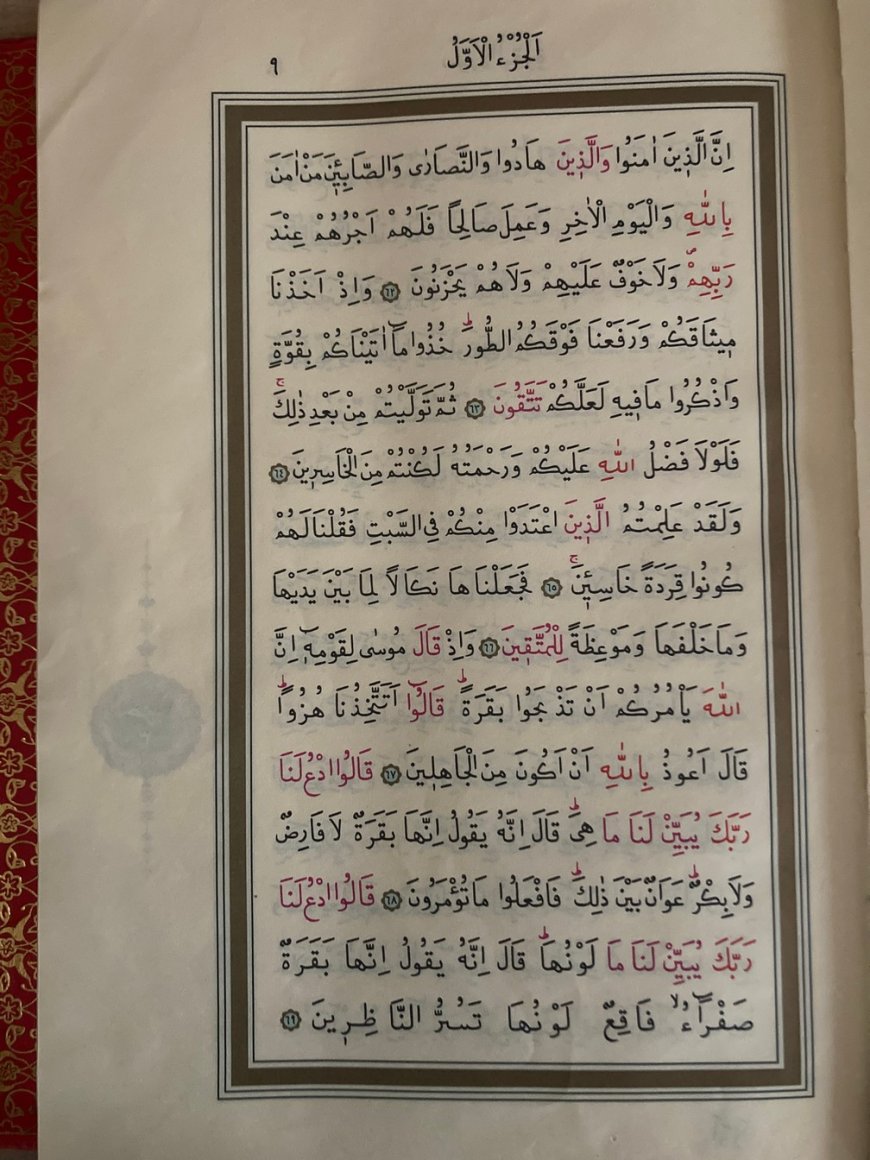 اَلْجُزْءُ الْاَوَّلُ ٩
اِنَّ الَّذٖينَ اٰمَنُوا وَالَّذٖينَ هَادُوا وَالنَّصَارٰى وَالصَّابِـٖٔينَ مَنْ اٰمَنَ
بِاللّٰهِ وَالْيَوْمِ الْاٰخِرِ وَعَمِلَ صَالِحًا فَلَهُمْ اَجْرُهُمْ عِنْدَ
رَبِّهِمْۖ وَلَا خَوْفٌ عَلَيْهِمْ وَلَا هُمْ يَحْزَنُونَ ﴿٦٢﴾ وَاِذْ اَخَذْنَا
مٖيثَاقَكُمْ وَرَفَعْنَا فَوْقَكُمُ الطُّورَؕ خُذُوا مَٓا اٰتَيْنَاكُمْ بِقُوَّةٍ
وَاذْكُرُوا مَا فٖيهِ لَعَلَّكُمْ تَتَّقُونَ ﴿٦٣﴾ ثُمَّ تَوَلَّيْتُمْ مِنْ بَعْدِ ذٰلِكَۚ
فَلَوْلَا فَضْلُ اللّٰهِ عَلَيْكُمْ وَرَحْمَتُهُ لَكُنْتُمْ مِنَ الْخَاسِرٖينَ ﴿٦٤﴾
وَلَقَدْ عَلِمْتُمُ الَّذٖينَ اعْتَدَوْا مِنْكُمْ فِي السَّبْتِ فَقُلْنَا لَهُمْ
كُونُوا قِرَدَةً خَاسِـٖٔينَۚ ﴿٦٥﴾ فَجَعَلْنَاهَا نَكَالًا لِمَا بَيْنَ يَدَيْهَا
وَمَا خَلْفَهَا وَمَوْعِظَةً لِلْمُتَّقٖينَ ﴿٦٦﴾ وَاِذْ قَالَ مُوسٰى لِقَوْمِهٖٓ اِنَّ
اللّٰهَ يَاْمُرُكُمْ اَنْ تَذْبَحُوا بَقَرَةًؕ قَالُٓوا اَتَتَّخِذُنَا هُزُوًاؕ
قَالَ اَعُوذُ بِاللّٰهِ اَنْ اَكُونَ مِنَ الْجَاهِلٖينَ ﴿٦٧﴾ قَالُوا ادْعُ لَنَا
رَبَّكَ يُبَيِّنْ لَنَا مَا هِيَؕ قَالَ اِنَّهُ يَقُولُ اِنَّهَا بَقَرَةٌ لَا فَارِضٌ
وَلَا بِكْرٌؕ عَوَانٌ بَيْنَ ذٰلِكَؕ فَافْعَلُوا مَا تُؤْمَرُونَ ﴿٦٨﴾ قَالُوا ادْعُ لَنَا
رَبَّكَ يُبَيِّنْ لَنَا مَا لَوْنُهَاؕ قَالَ اِنَّهُ يَقُولُ اِنَّهَا بَقَرَةٌ
صَفْرَٓاءُۙ فَاقِعٌ لَوْنُهَا تَسُرُّ النَّاظِرٖينَ ﴿٦٩﴾